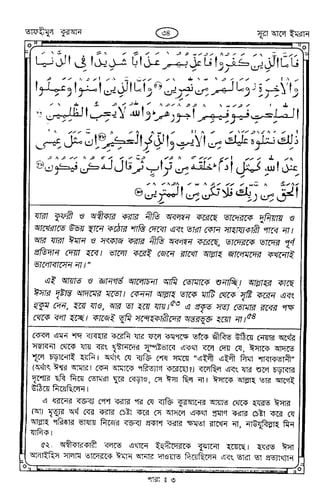 তাফহীমুল কুরআন ৩৪ সূরা আলে ইমরান
فَاَمَّا الَّذِيْنَ كَفَرُوْا فَاُعَذِّبُهُمْ عَذَابًا شَدِيْدًا فِى الدُّنْيَا
وَالْاٰخِرَةِ وَمَا لَهُمْ مِّنْ نّٰصِرِيْنَ ﴿٥٦﴾ وَاَمَّا الَّذِيْنَ اٰمَنُوْا وَعَمِلُوا
الصّٰلِحٰتِ فَيُوَفِّيْهِمْ اُجُوْرَهُمْ وَاللّٰهُ لَا يُحِبُّ الظّٰلِمِيْنَ ﴿٥٧﴾
ذٰلِكَ نَتْلُوْهُ عَلَيْكَ مِنَ الْاٰيٰتِ وَالذِّكْرِ الْحَكِيْمِ ﴿٥٨﴾ اِنَّ مَثَلَ عِيْسٰى
عِنْدَ اللّٰهِ كَمَثَلِ اٰدَمَ خَلَقَهٗ مِنْ تُرَابٍ ثُمَّ قَالَ لَهٗ كُنْ فَيَكُوْنُ ﴿٥٩﴾
اَلْحَقُّ مِنْ رَّبِّكَ فَلَا تَكُنْ مِّنَ الْمُمْتَرِيْنَ ﴿٦٠﴾
যারা কুফরী ও অস্বীকার করার নীতি অবলম্বন করেছে তাদেরকে দুনিয়ায় ও
আখেরাতে উভয় স্থানে কঠোর শাস্তি দেবো এবং তারা কোন সাহায্যকারী পাবে না।
আর যারা ঈমান ও সৎকাজ করার নীতি অবলম্বন করেছে, তাদেরকে তাদের পূর্ণ
প্রতিদান দেয়া হবে। ভালো করেই জেনে রাখো আল্লাহ জালেমদের কখনোই
ভালোবাসেন না।”
এই আয়াত ও জ্ঞানগর্ভ আলোচনা আমি তোমাকে শুনাচ্ছি। আল্লাহর কাছে
ঈসার দৃষ্টান্ত আদমের মতো। কেননা আল্লাহ তাকে মাটি থেকে সৃষ্টি করেন এবং
হুকুম দেন, হয়ে যাও, আর তা হয়ে যায়।৫৩ এ প্রকৃত সত্য তোমার রবের পক্ষ
থেকে বলা হচ্ছে। কাজেই তুমি সন্দেহকারীদের অন্তরভুক্ত হয়ো না।৫৪
কেবল এমন শব্দ ব্যবহার করেনি যার ফলে কমপক্ষে তাঁকে জীবিত উঠিয়ে নেয়ার অর্থের
সম্ভাবনা থেকে যায় বরং খৃস্টানদের সুস্পষ্টভাবে একথা বলে দেয় যে, ঈসাকে আদতে
শূলে চড়ানোই হয়নি। অর্থাৎ যে ব্যক্তি শেষ সময়ে “এইলী এইলী লিমা শাবাকতানী”
(অর্থাৎ ঈশ্বর আমার। কেন আমাকে পরিত্যাগ করেছো?) বলেছিল এবং যার শূলে চড়াবার
দৃশ্যের ছবি নিয়ে তোমরা ঘুরে বেড়াও, সে ঈসা ছিল না। ঈসাকে আল্লাহ তার আগেই
উঠিয়ে নিয়েছিলেন।
এ ধরনের বক্তব্য পেশ করার পর যে ব্যক্তি কুরআনের আয়াত থেকে হযরত ঈসার
(আ) মৃত্যুর অর্থ বের করার চেষ্টা করে সে আসলে একথা প্রমাণ করার চেষ্টা করে যে
আল্লাহ পরিষ্কার ভাষায় নিজের বক্তব্য প্রকাশ করার ক্ষমতা রাখেন না, নাউযুবিল্লাহ মিন
যালিক।
৫২. অস্বীকারকারী বলতে এখানে ইহুদীদেরকে বুঝানো হয়েছে। হযরত ঈসা
আলাইহিস সালাম তাদেরকে ঈমান আনার দাওয়াত দিয়েছিলেন এবং তারা তা প্রত্যাখ্যান
পারা ঃ ৩